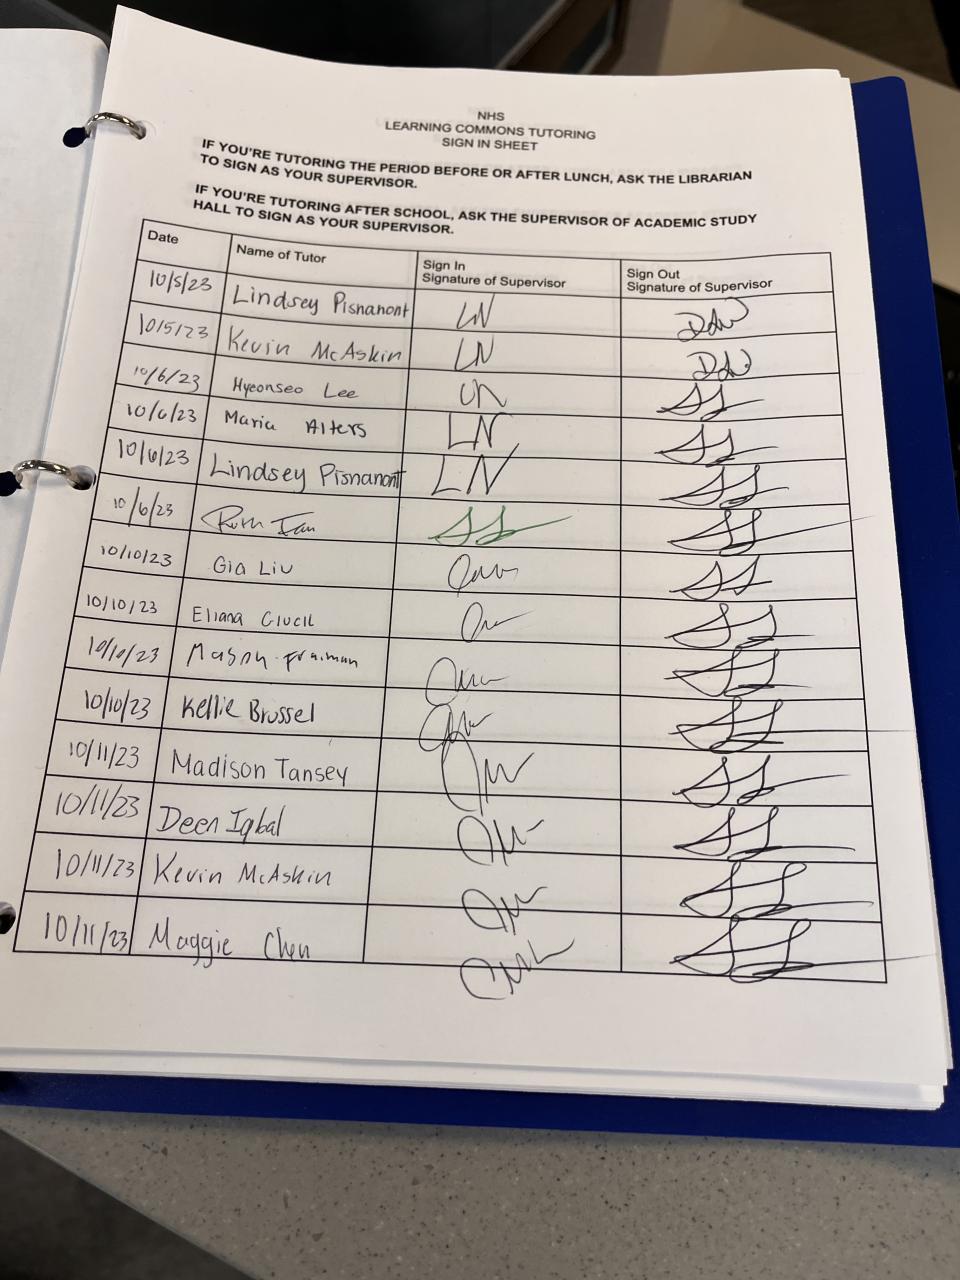 NHS
LEARNING COMMONS TUTORING
SIGN IN SHEET
IF YOU'RE TUTORING THE PERIOD BEFORE OR AFTER LUNCH, ASK THE LIBRARIAN
TO SIGN AS YOUR SUPERVISOR.
IF YOU'RE TUTORING AFTER SCHOOL, ASK THE SUPERVISOR OF ACADEMIC STUDY
HALL TO SIGN AS YOUR SUPERVISOR.
Date Name of Tutor Sign In Sign Out
Signature of Supervisor Signature of Supervisor
10/5/23 Lindsey Pisnanont LN
10/5/23 Kevin McAskin LN
10/6/23 Hyeonseo Lee
10/6/23 Maria Alters LN
10/6/23 Lindsey Pisnanont LN
10/6/23 Ruth
10/10/23 Gia Liu
10/10/23 Eliana
10/10/23 Mason Fraiman
10/10/23 Kellie Brussel
10/11/23 Madison Tansey
10/11/23 Deen Iqbal
10/11/23 Kevin McAskin
10/11/23 Maggie Chen